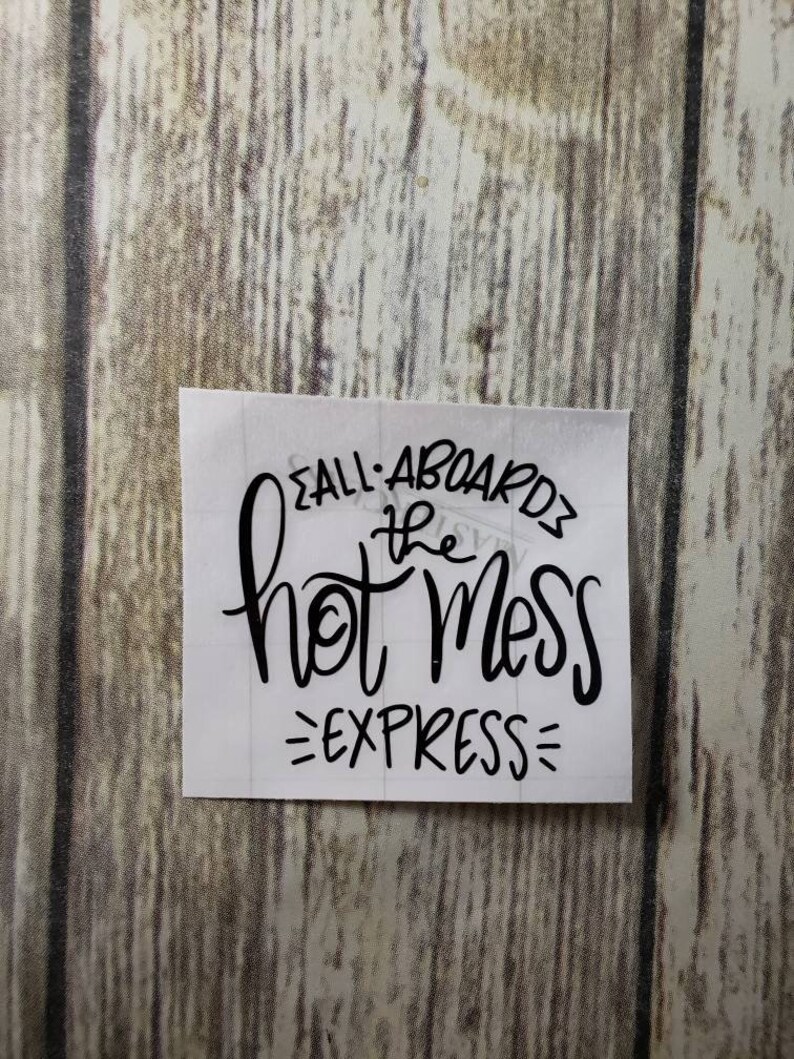 ALL·ABOARD
the
hot mess
EXPRESS